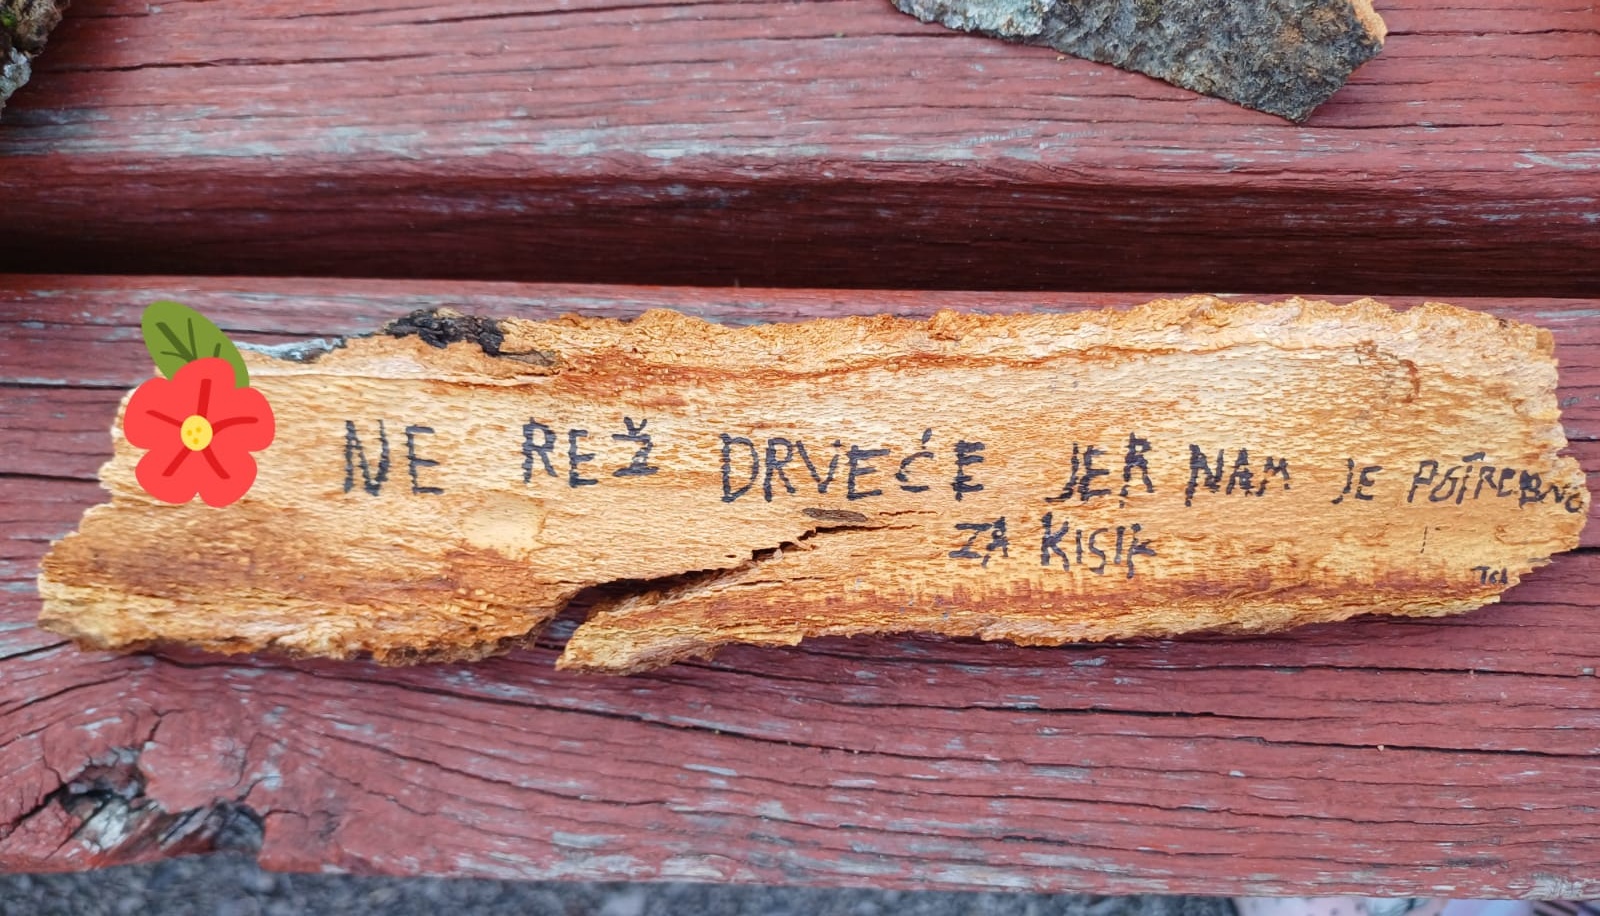 NE REŽ DRVEĆE JER NAM JE POTREBNO
ZA KISIK